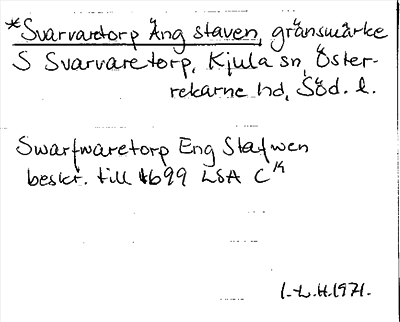 *Svarvaretorp Äng staven, gränsmärke
S Svarvaretorp, Kjula sn, Öster-
rekarne hd, Söd. l.
Swarfwaretorp Eng Stafwen
beskr. till 1699 LSA C 14
I.-L.H. 1971.